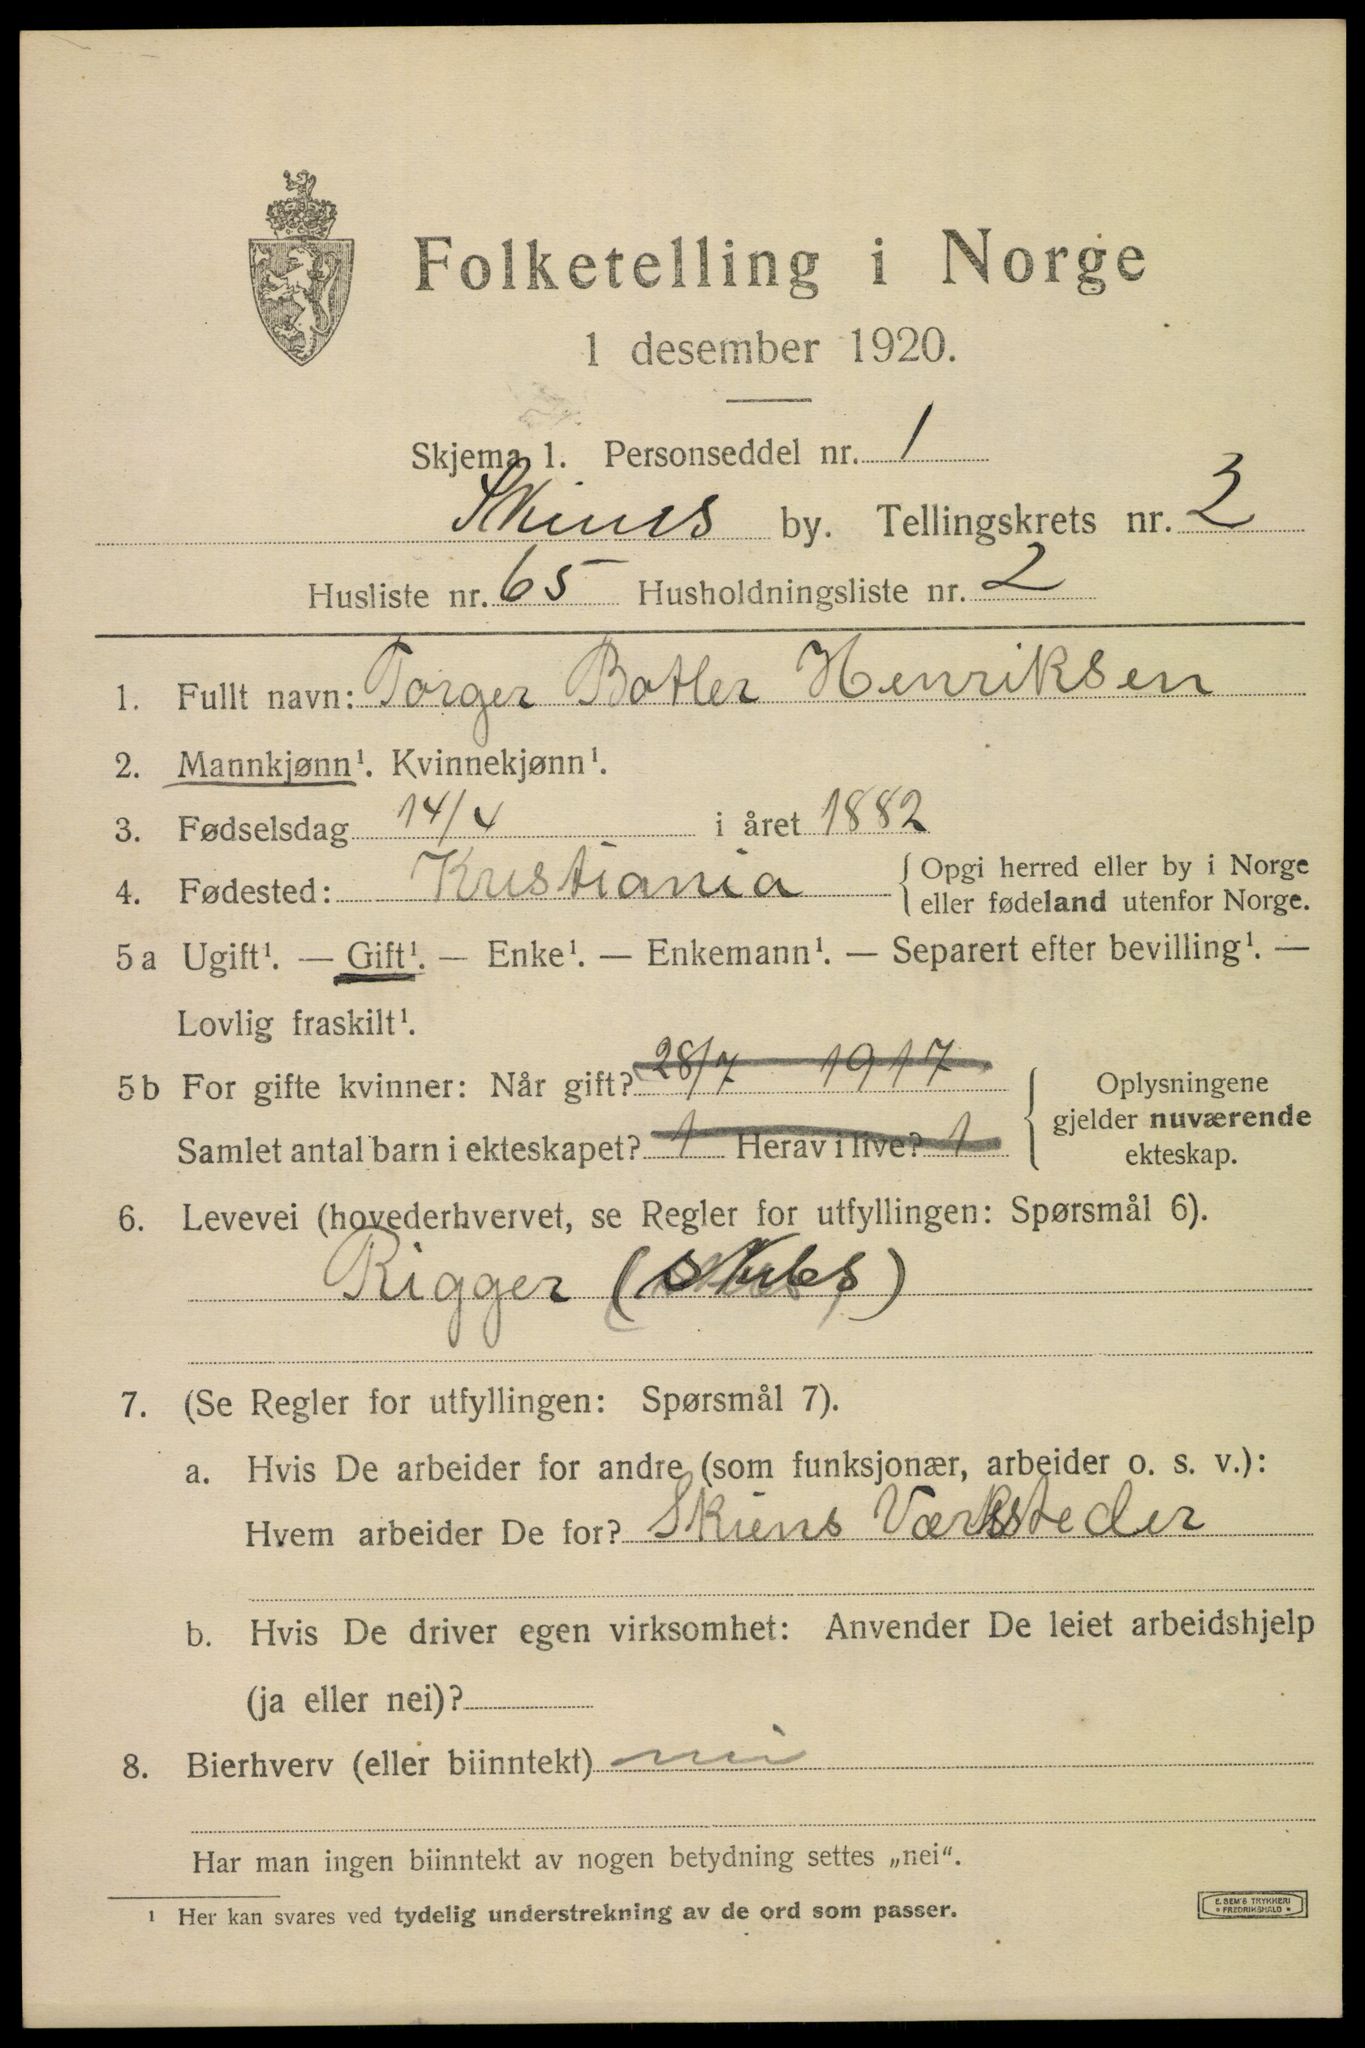 Folketelling i Norge
1 desember 1920.
Skjema 1. Personseddel nr. 1
Skiens by. Tellingskrets nr. 3
Husliste nr. 65 Husholdningsliste nr. 2
1. Fullt navn: Torger Botler Henriksen
2. Mannkjønn¹. Kvinnekjønn¹.
3. Fødselsdag 14/4 i året 1882
4. Fødested: Kristiania { Opgi herred eller by i Norge
eller fødeland utenfor Norge.
5a Ugift¹. — Gift¹. — Enke¹. — Enkemann¹. — Separert efter bevilling¹. —
Lovlig fraskilt¹.
5b For gifte kvinner: Når gift? 28/7 1917
Samlet antal barn i ekteskapet? 1 Herav i live? 1
{ Oplysningene
gjelder nuværende
ekteskap.
6. Levevei (hovederhvervet, se Regler for utfyllingen: Spørsmål 6).
Rigger (skibs)
7. (Se Regler for utfyllingen: Spørsmål 7).
a. Hvis De arbeider for andre (som funksjonær, arbeider o. s. v.):
Hvem arbeider De for? Skiens Værksteder
b. Hvis De driver egen virksomhet: Anvender De leiet arbeidshjelp
(ja eller nei)?
8. Bierhverv (eller biinntekt) nei
Har man ingen biinntekt av nogen betydning settes „nei“.
¹ Her kan svares ved tydelig understrekning av de ord som passer.
E. SEM'S TRYKKERI
FREDRIKSHALD